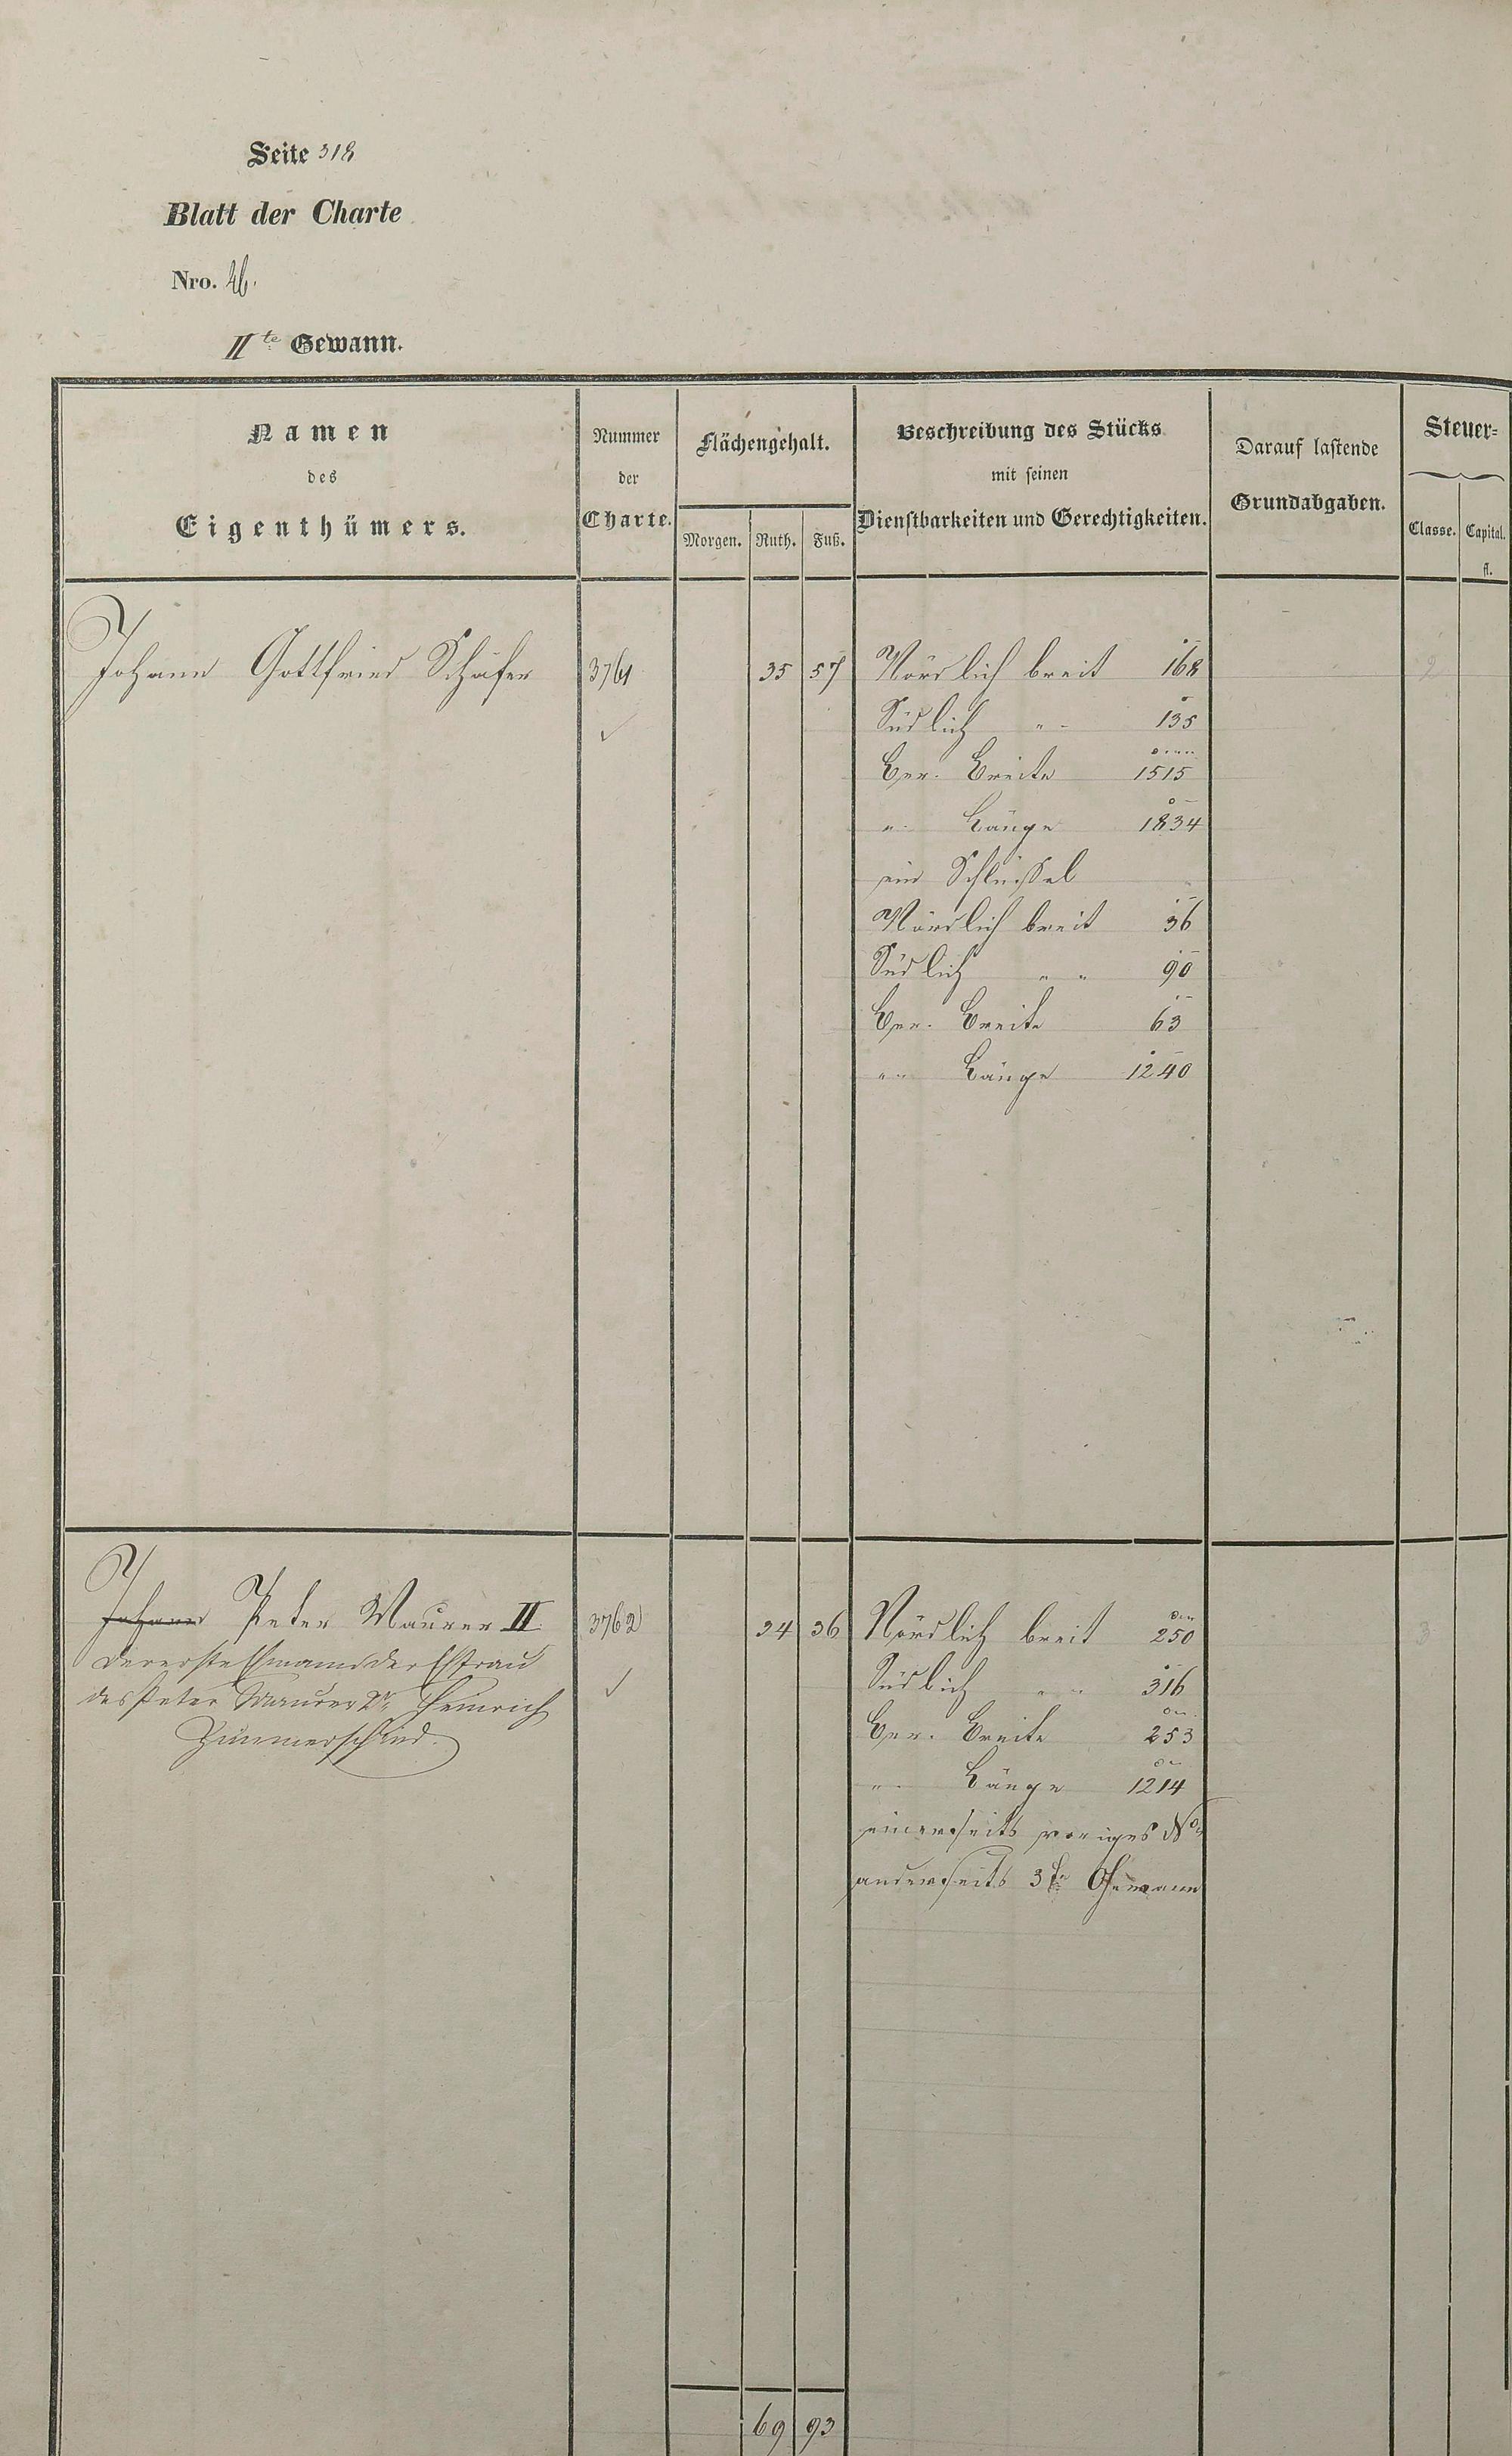 Seite 318
Blatt der Charte
Nro. 26.
IIte Gewann.
Namen
des
Eigenthümers.
Nummer
der
Charte.
Flächengehalt.
Morgen. Ruth. Fuß.
Beschreibung des Stücks
mit seinen
Dienstbarkeiten und Gerechtigkeiten.
Darauf lastende
Grundabgaben.
Steuer-
Classe. Capital.
fl.
Johann Gottfried Schäfer 3761 35 57 Nördlich breit 168 2
Südlich " " 135
Ger. Breite 1515
" Länge 1834
ein Schlüssel
Nördlich breit 36
Südlich " " 90
Ger. Breite 63
" " Länge 1240
Johann Peter Maurer II 3762 34 36 Nördlich breit 250 3
der erste Ehmann der Ehfrau
des Peter Maurer 2r Heinrich
Zimmerschied.
Südlich " " 316
Ger. Breite 253
" Länge 1214
einerseits voriges No
anderseits 3te Gewann
69 93